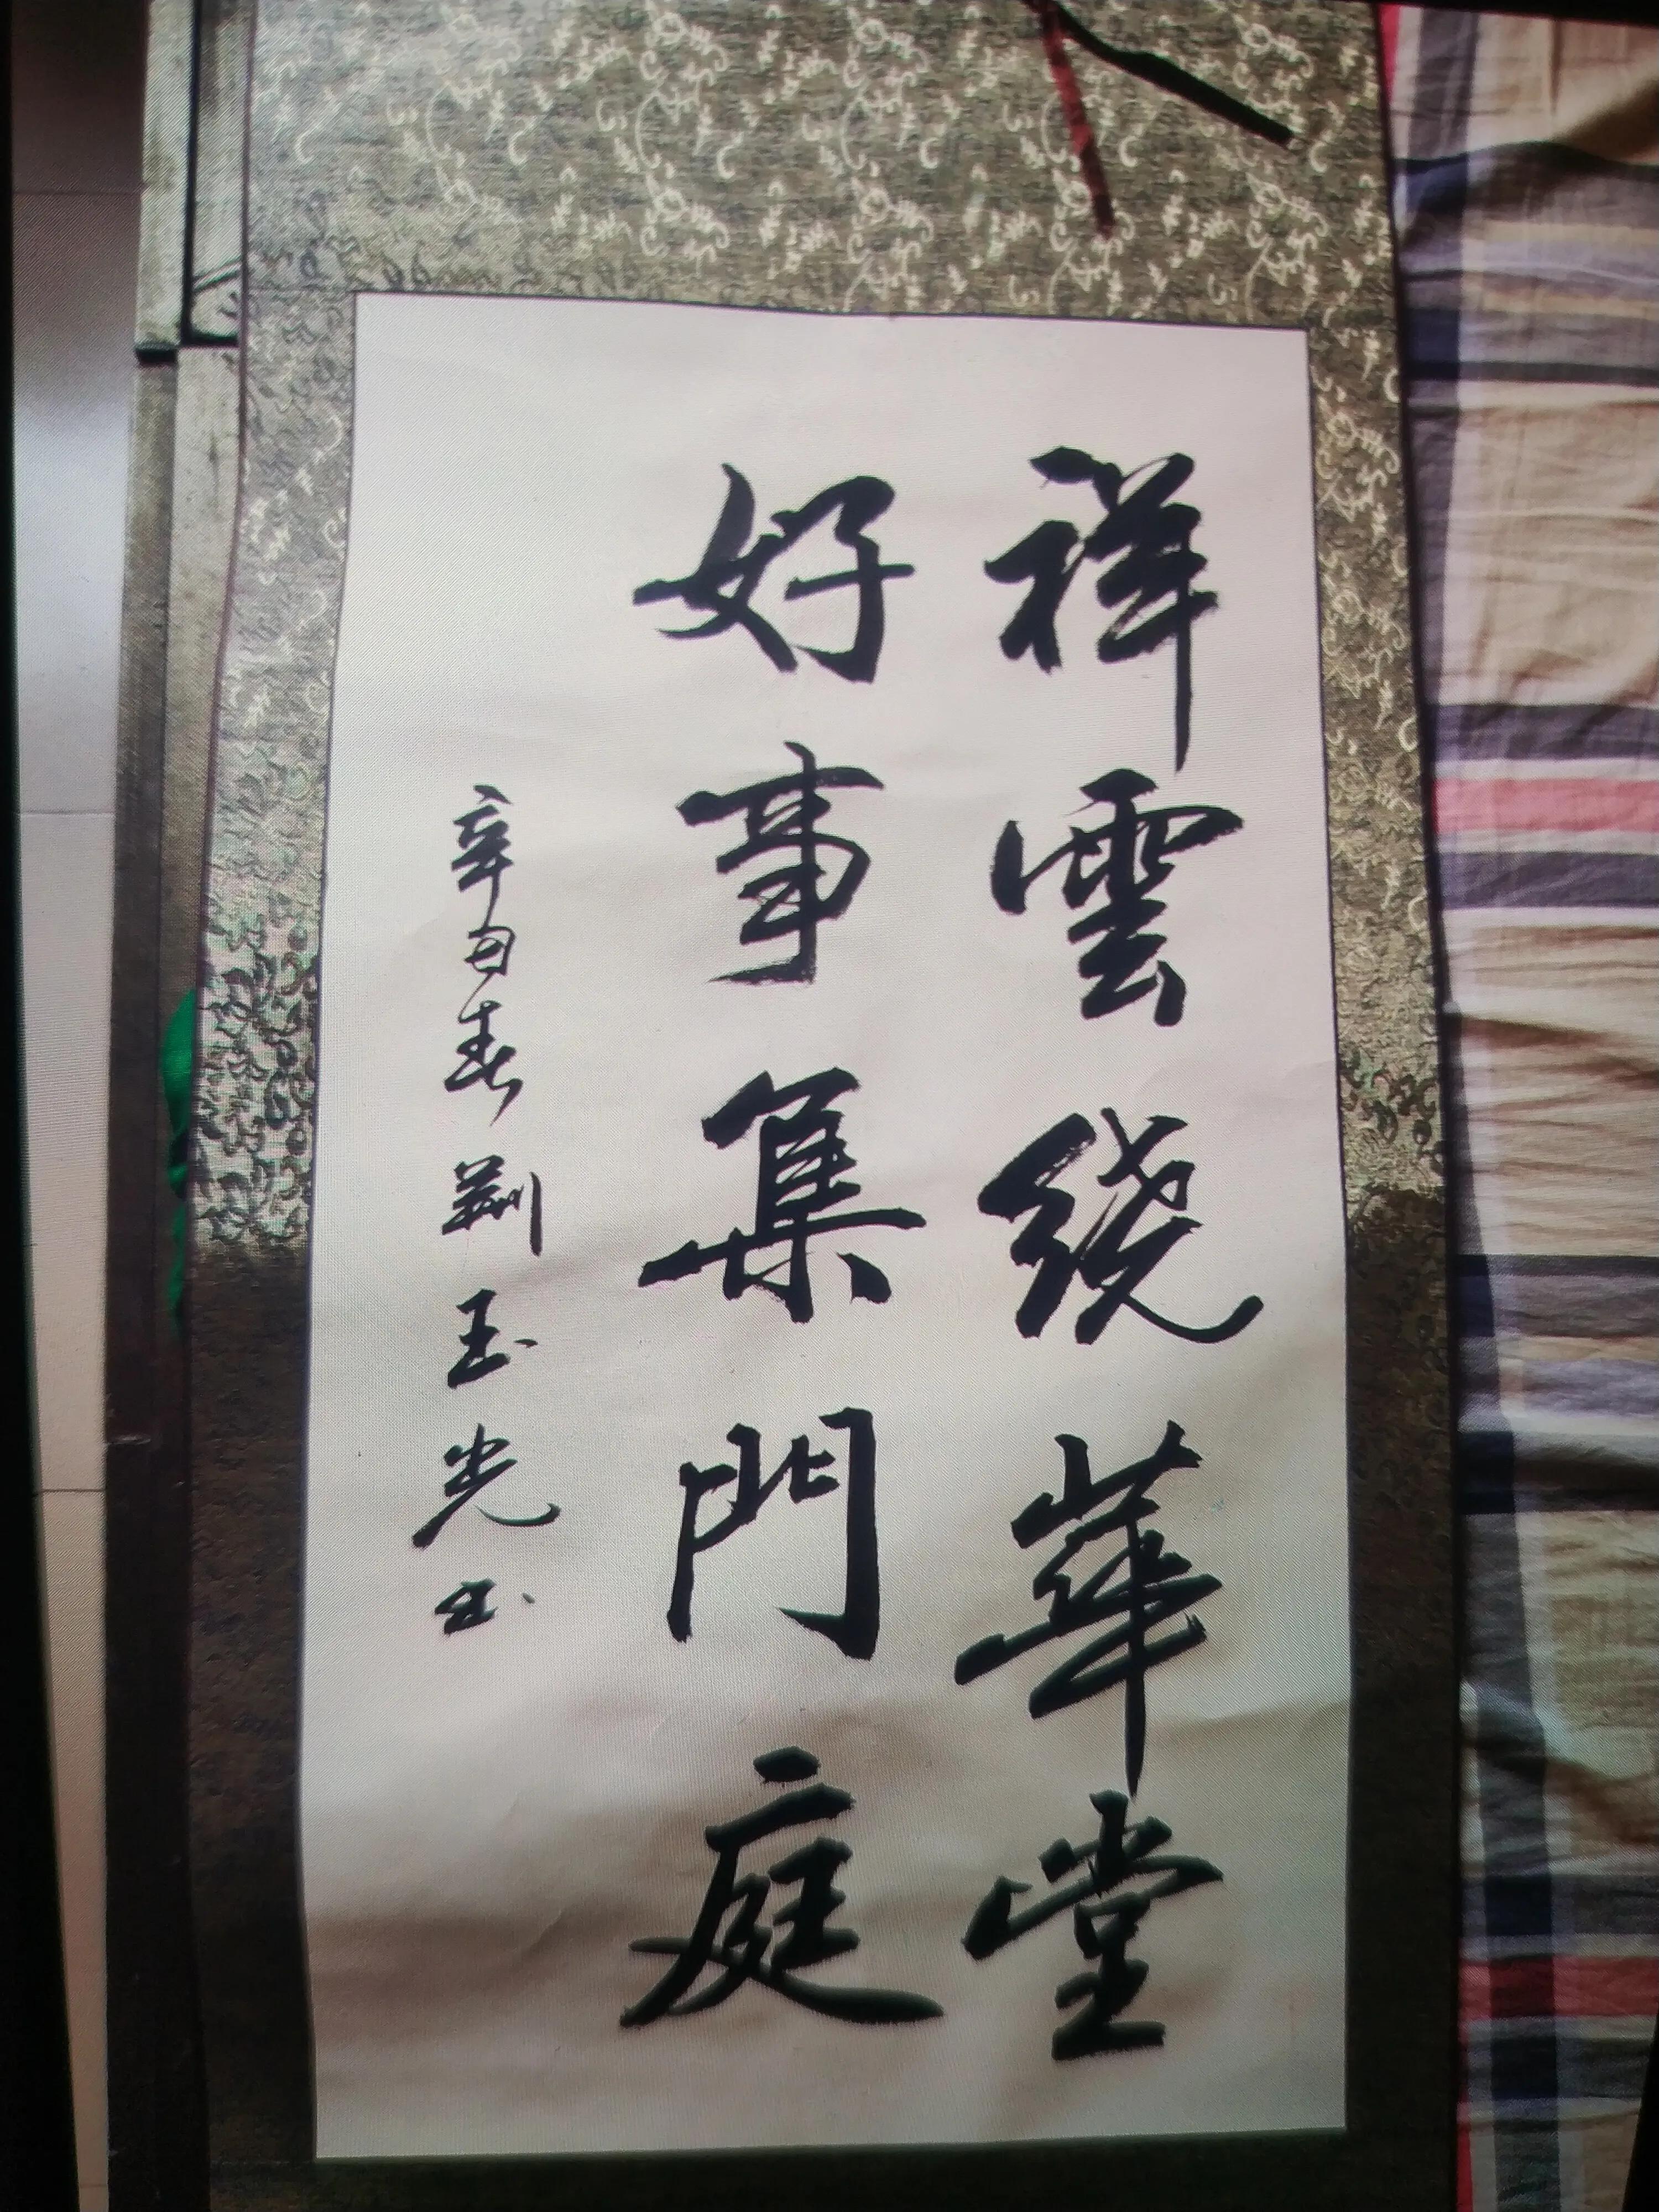 祥雲繞華堂
好事集門庭
辛丑春荊玉光书